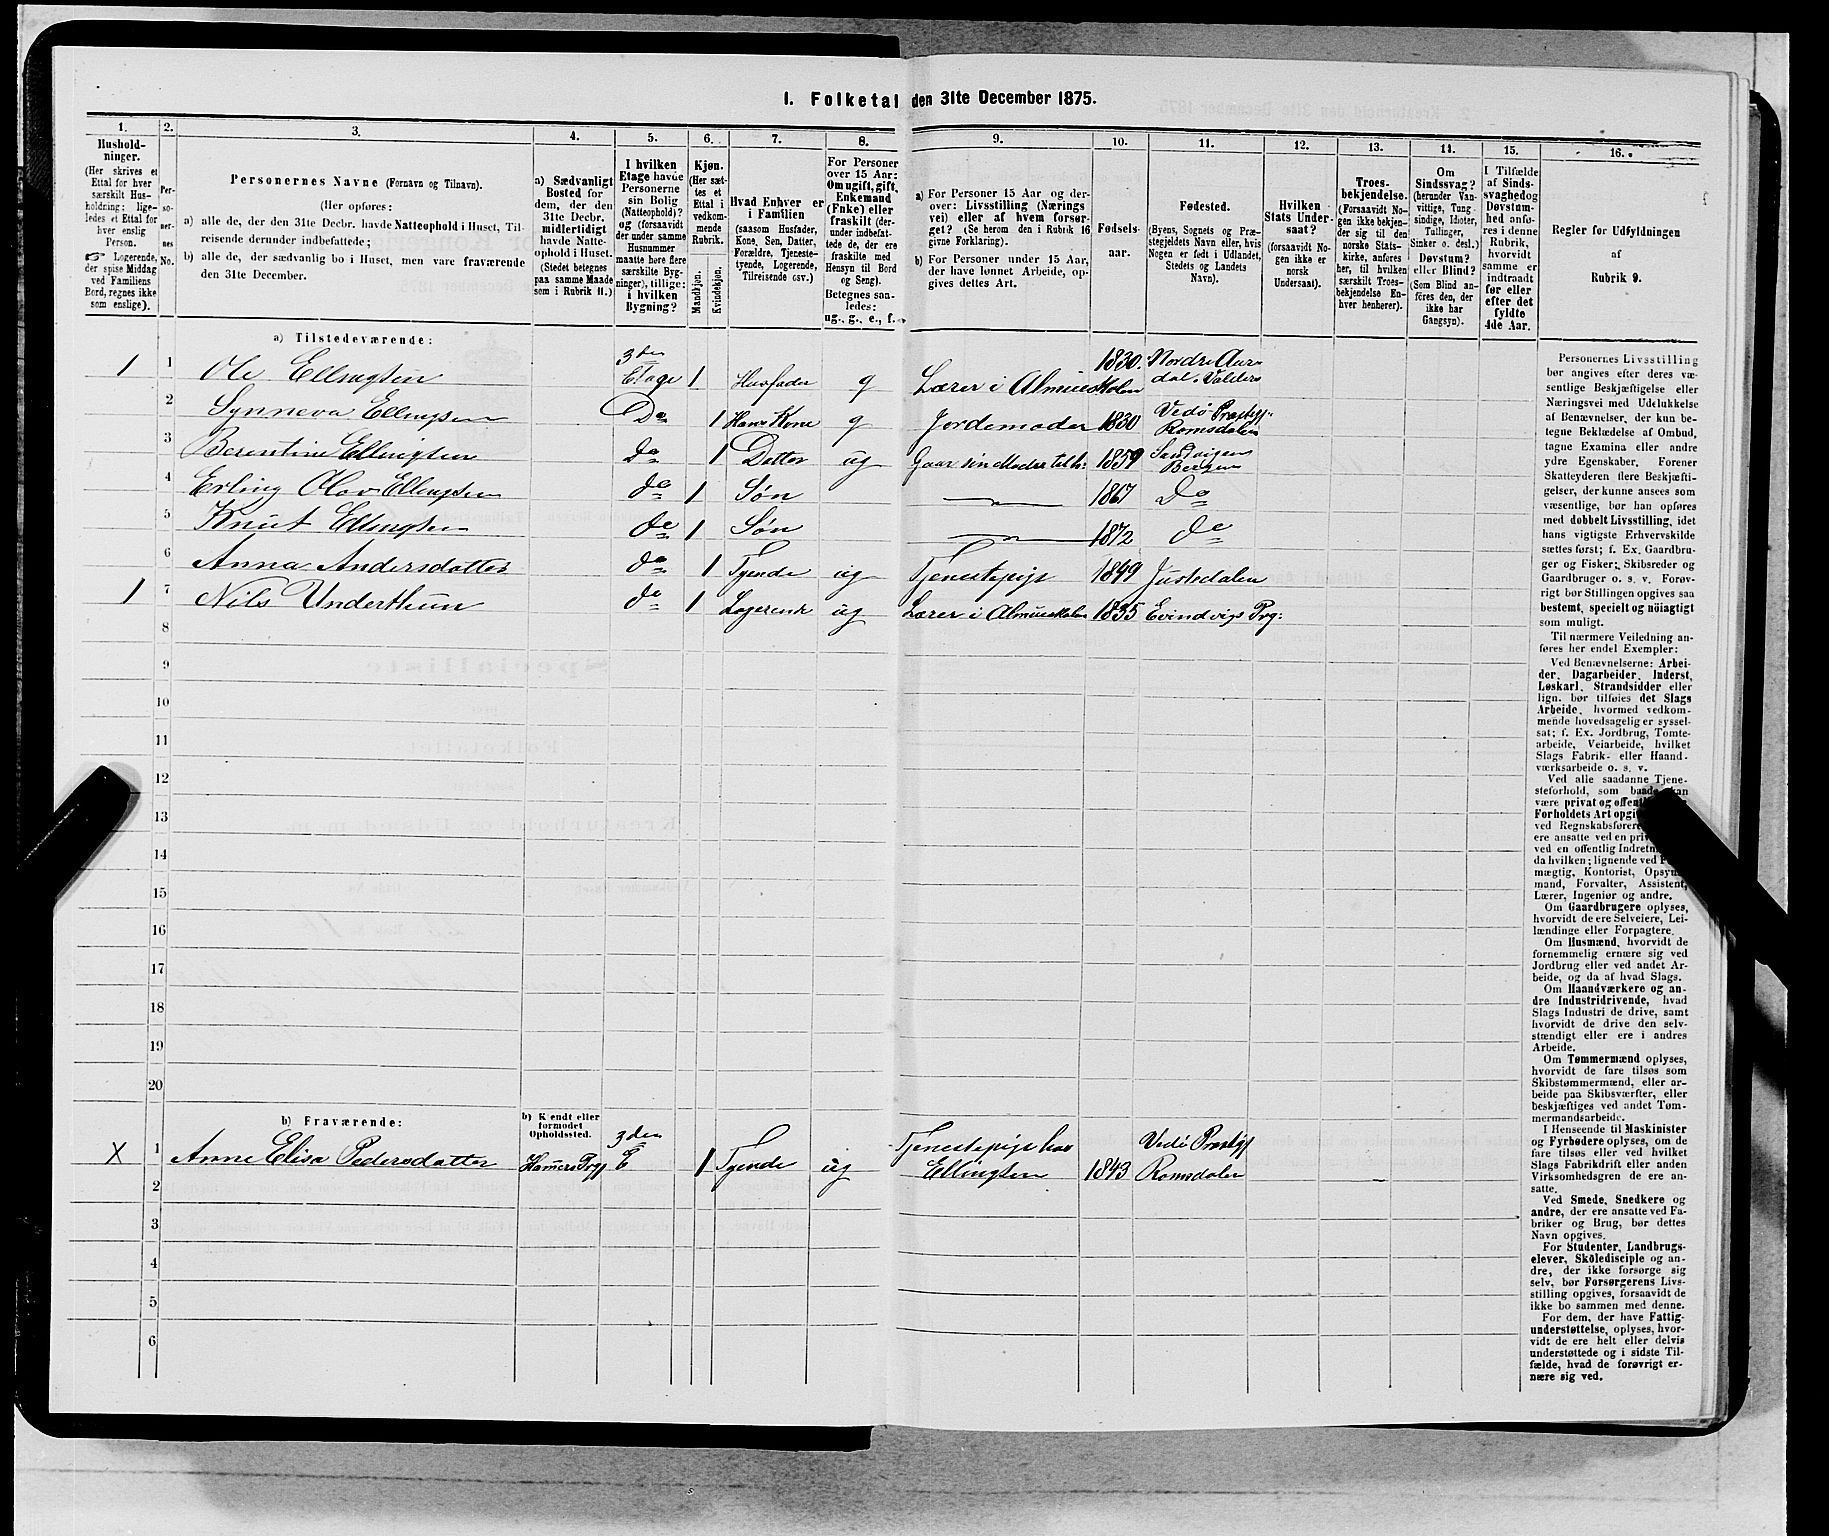 I. Folketal den 31te December 1875.
1.
Hushold-
ninger.
(Her skrives et
Ettal for hver
særskilt Hus-
holdning; lige-
ledes et Ettal for
hver enslig
Person.
☞ Logerende,
der spise Middag
ved Familiens
Bord, regnes ikke
som enslige).
2.
Per-
so-
ner-
nes
No.
3.
Personernes Navne (Fornavn og Tilnavn).
(Her opføres:
a) alle de, der den 31te Decbr. havde Natteophold i Huset, Til-
reisende derunder indbefattede;
b) alle de, der sædvanlig bo i Huset, men vare fraværende
den 31te December.
4.
a) Sædvanligt
Bosted for
dem, der den
31te Decbr.
midlertidigt
havde Natte-
ophold i Huset.
(Stedet betegnes
paa samme Maade
som i Rubrik 11.)
5.
I hvilken
Etage havde
Personerne
sin Bolig
(Natteophold)?
og (forsaavidt
der under samme
Husnummer
maatte høre flere
særskilte Byg-
ninger), tillige:
i hvilken
Bygning?
6.
Kjøn.
(Her sæt-
tes et
Ettal i
vedkom-
mende
Rubrik.
Mandkjøn.
Kvindekjøn.
7.
Hvad Enhver er
i Familien
(saasom Husfader,
Kone, Søn, Datter,
Forældre, Tjeneste-
tyende, Logerende,
Tilreisende osv.)
8.
For Personer
over 15 Aar:
Om ugift, gift,
Enkemand
(Enke) eller
fraskilt (der-
under indbefat-
tede de, der ere
fraskilte med
Hensyn til Bord
og Seng).
Betegnes saa-
ledes:
ug., g., e., f.
9.
a) For Personer 15 Aar og der-
over: Livsstilling (Nærings
vei) eller af hvem forsør-
get? (Se herom den i Rubrik 16
givne Forklaring).
b) For Personer under 15 Aar,
der have lønnet Arbeide, op-
gives dettes Art.
10.
Fødsels-
aar.
11.
Fødested.
(Byens, Sognets og Præ-
stegjeldets Navn eller, hvis
Nogen er født i Udlandet,
Stedets og Landets
Navn).
12.
Hvilken
Stats Under-
saat?
(forsaavidt No-
gen ikke er
norsk
Undersaat).
13.
Troes-
bekjendelse.
(Forsaavidt No-
gen ikke bekjen-
der sig til den
norske Stats-
kirke, anføres
her, til hvilken
særskilt Troes-
bekjendelse En-
hver henhører).
14.
Om
Sindssvag?
(herunder Van-
vittige, Tung-
sindige, Idioter,
Tullinger,
Sinker o. desl.)
Døvstum?
eller Blind?
(Som Blind an-
føres den, der
ikke har
Gangsyn).
15.
I Tilfælde
af Sinds-
svaghedog
Døvstum-
hed anfø-
res i denne
Rubrik,
hvorvidt
samme er
indtraadt
før eller
efter det
fyldte
4de Aar.
16.
Regler for Udfyldningen
af
Rubrik 9.
a) Tilstedeværende:
1 1 Ole Ellingsen 3die Etage 1 Husfader g Lærer i Almueskolen 1830. Nordre Aurdal, Valders
2 Synneva Ellingsen Do 1 Hans Kone g Jordemoder 1830 Vedø Præstgj: Romsdalen
3 Berentine Ellingsen do 1 Datter ug Gaar sin Moder tilh: 1859 Bergen
4 Erling Olov Ellingsen do 1 Søn 1867 Do
5 Knut Ellingsen do 1 Søn 1872 do
6 Anna Andersdatter do 1 Tyende ug Tjenestepige 1849 Justedalen
1 7 Nils Underthun do 1 Logerende ug Lærer i Almueskolen 1835 Evindvigs Prg:
8
9
10
11
12
13
14
15
16
17
18
19
20
b) Fraværende:
b) Kjendt eller
formodet
Opholdssted.
X 1 Anne Elisa Pedersdatter Hamers Prgj 3die E 1 Tyende ug Tjenestepige hos Ellingsen 1843 Vedø Præstgj Romsdalen
2
3
4
5
6
Personernes Livsstilling
bør angives efter deres væ-
sentlige Beskjæftigelse eller
Næringsvei med Udelukkelse
af Benævnelser, der kun be-
tegne Beklædelse af Ombud,
tagne Examina eller andre
ydre Egenskaber. Forener
Skatteyderen flere Beskjæfti-
gelser, der kunne ansees som
væsentlige, bør han opføres
med dobbelt Livsstilling, idet
hans vigtigste Erhvervskilde
sættes først; f. Ex. Gaardbru-
ger og Fisker; Skibsreder og
Gaardbruger o. s. v. Forøv-
rigt bør Stillingen opgives saa
bestemt, specielt og nöiagtigt
som muligt.
Til nærmere Veiledning an-
føres her endel Exempler:
Ved Benævnelserne: Arbei-
der, Dagarbeider, Inderst,
Løskarl, Strandsidder eller
lign. bør tilføies det Slags
Arbeide, hvormed vedkom-
mende hovedsagelig er syssel-
sat; f. Ex. Jordbrug, Tomte-
arbeide, Veiarbeide, hvilket
Slags Fabrik- eller Haand-
værksarbeide o. s. v.
Ved alle saadanne Tjene-
steforhold, som baade kan
være privat og offentlig
Forholdets Art opgi
ved Regnskabsfører
ere ansatte ved en pri
ved en offentlig Indretn
da hvilken; lignende ved F
mægtig, Kontorist, Opsyns-
mand, Forvalter, Assistent,
Lærer, Ingeniør og andre.
Om Gaardbrugere oplyses,
hvorvidt de ere Selveiere, Lei-
lændinge eller Forpagtere.
Om Husmænd, hvorvidt de
fornemmelig ernære sig ved
Jordbrug eller ved andet Ar-
beide, og da af hvad Slags.
Om Haandværkere og an-
dre Industridrivende, hvad
Slags Industri de drive, samt
hvorvidt de drive den selv-
stændigt eller ere i andres
Arbeide.
Om Tømmermænd oplyses,
hvorvidt de fare tilsøs som
Skibstømmermænd, eller ar-
beide paa Skibsværfter, eller
beskjæftiges ved andet Tøm-
mermandsarbeide.
I Henseende til Maskinister
og Fyrbødere oplyses, om de
fare tilsøs eller ved hvilket
Slags Fabrikdrift eller anden
Virksomhedsgren de ere an-
satte.
Ved Smede, Snedkere og
andre, der ere ansatte ved Fa-
briker og Brug, bør dettes
Navn opgives.
For Studenter, Landbrugs-
elever, Skoledisciple og an-
dre, der ikke forsørge sig
selv, bør Forsørgerens Livs-
stilling opgives, forsaavidt de
ikke bo sammen med denne.
For dem, der have Fattig-
understøttelse, oplyses, hvor-
vidt de ere helt eller delvis
understøttede og i sidste Til-
fælde, hvad de forøvrigt er-
nære sig ved.